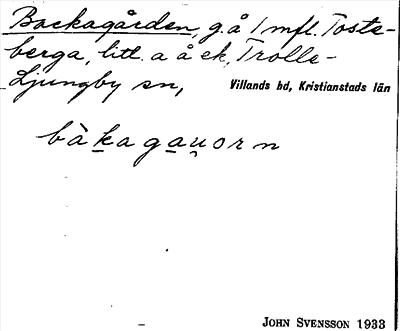 Backagården, g. å 1 mfl. Toste-
berga, litl. a å ek, Trolle-
Ljungby sn, Villands hd, Kristianstads län
bàkagau̯orn
JOHN SVENSSON 1933